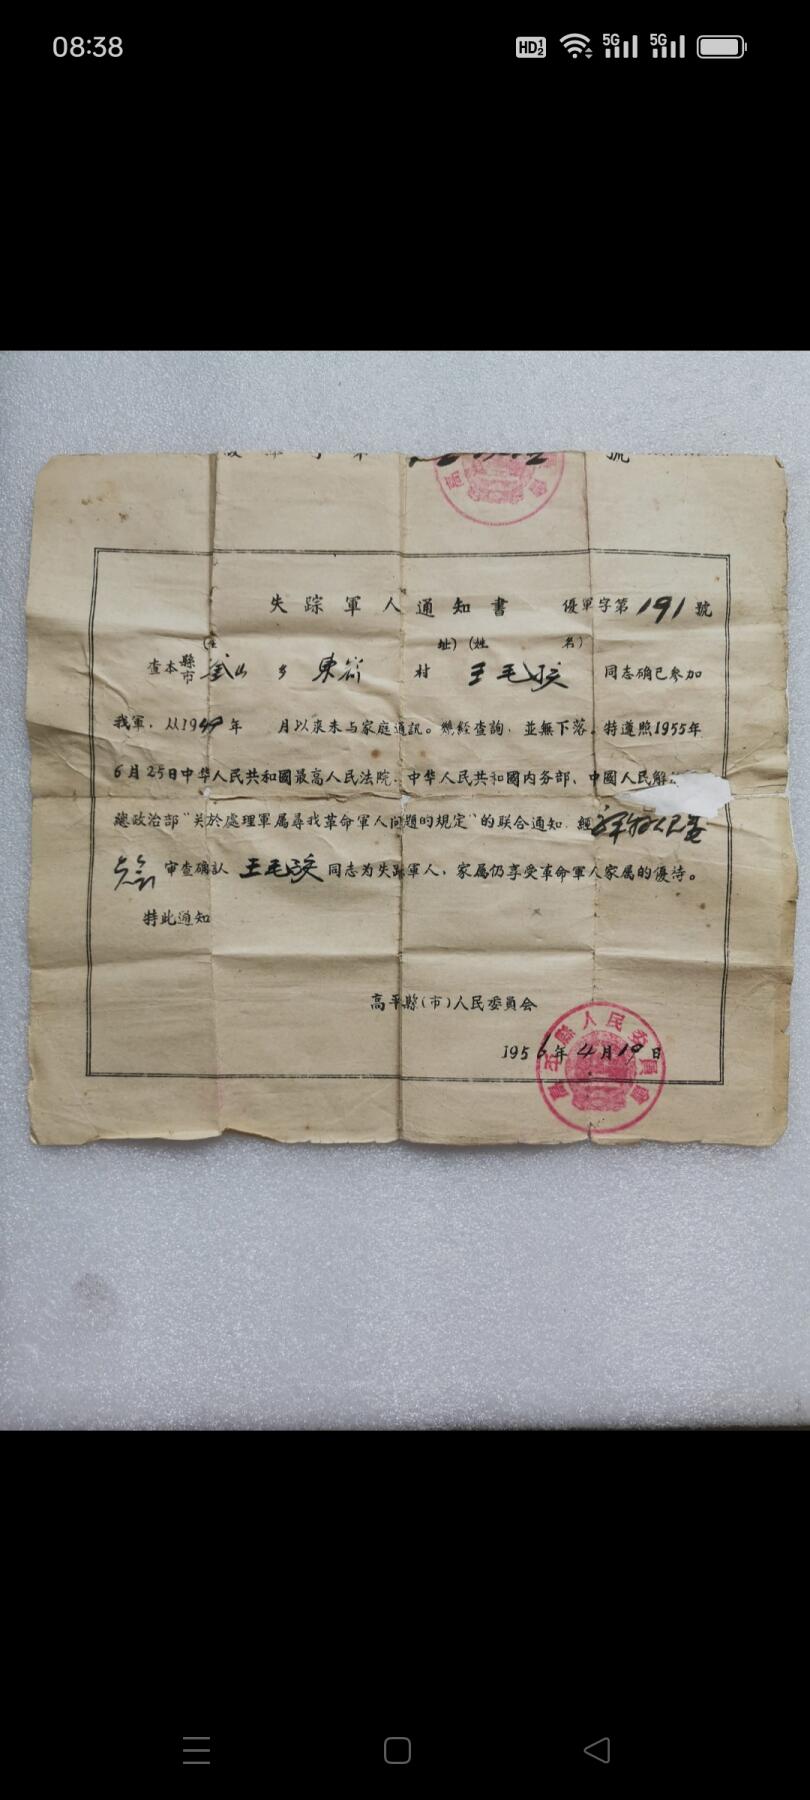 08:38
號
失踪軍人通知書 優軍字第191號
(住 址)(姓 名)
查本縣市 釜山 乡 東 村 王毛孩 同志确已参加
我軍，从1949年 月以來未与家庭通訊。經查詢，並無下落，特遵照1955年
6月25日中华人民共和國最高人民法院、中华人民共和國内务部、中國人民解
總政治部“关於處理軍属尋找革命軍人问題的規定”的联合通知，經
審查确认 王毛孩 同志为失踪軍人，家属仍享受革命軍人家属的優待。
特此通知
高平縣(市)人民委員会
1956年4月19日
高平縣人民委員會